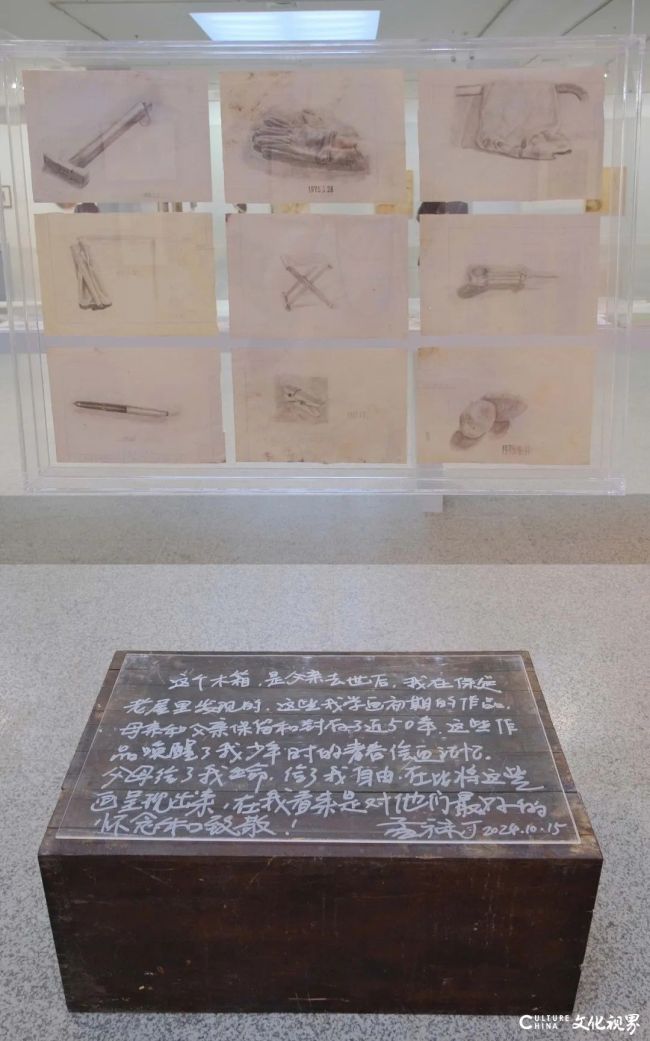 1975.5.28
这个木箱，是父亲去世后，我在保定
老屋里发现的，这些我学画初期的作品，
母亲和父亲保留和封存了近50年，这些作
品唤醒了我少年时的青春绘画记忆。
父母给了我生命，给了我自由，在此将这些
画呈现出来，在我看来是对他们最好的
怀念和致敬！ 2024.10.15
CULTURE CHINA 文化视界